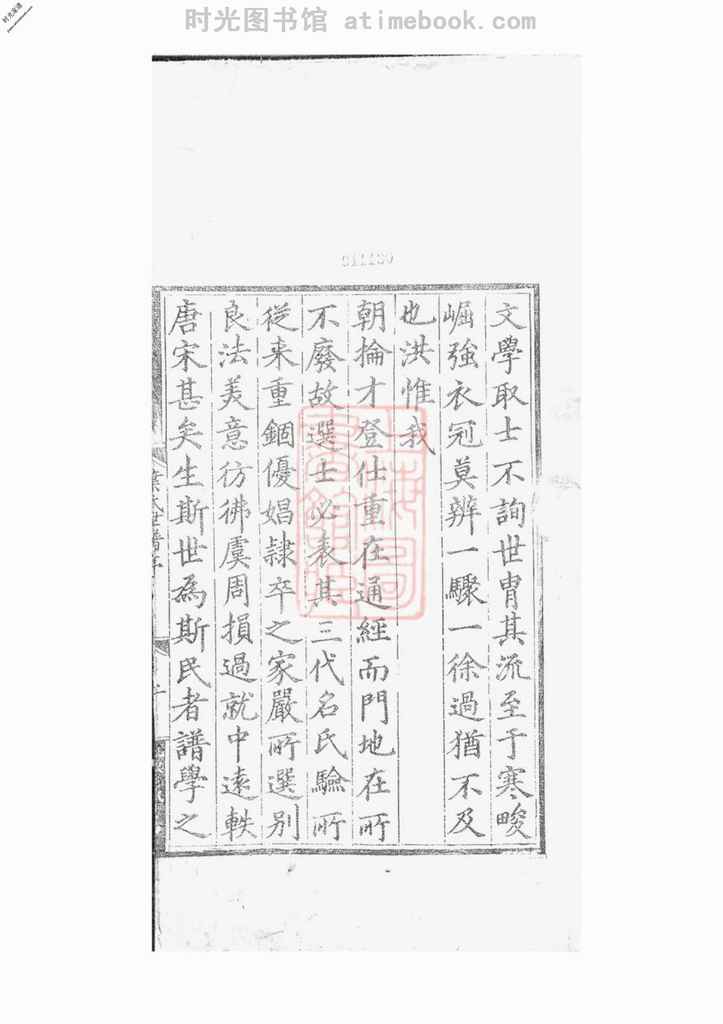 时光图书馆 atimebook.com
文學取士不詢世胄其流至于寒畯
崛強衣冠莫辨一驟一徐過猶不及
也洪惟我
朝掄才登仕重在通經而門地在所
不廢故選士必表其三代名氏驗所
從来重錮優娼隷卒之家嚴所選别
良法美意彷彿虞周損過就中遠軼
唐宋甚矣生斯世為斯民者譜學之